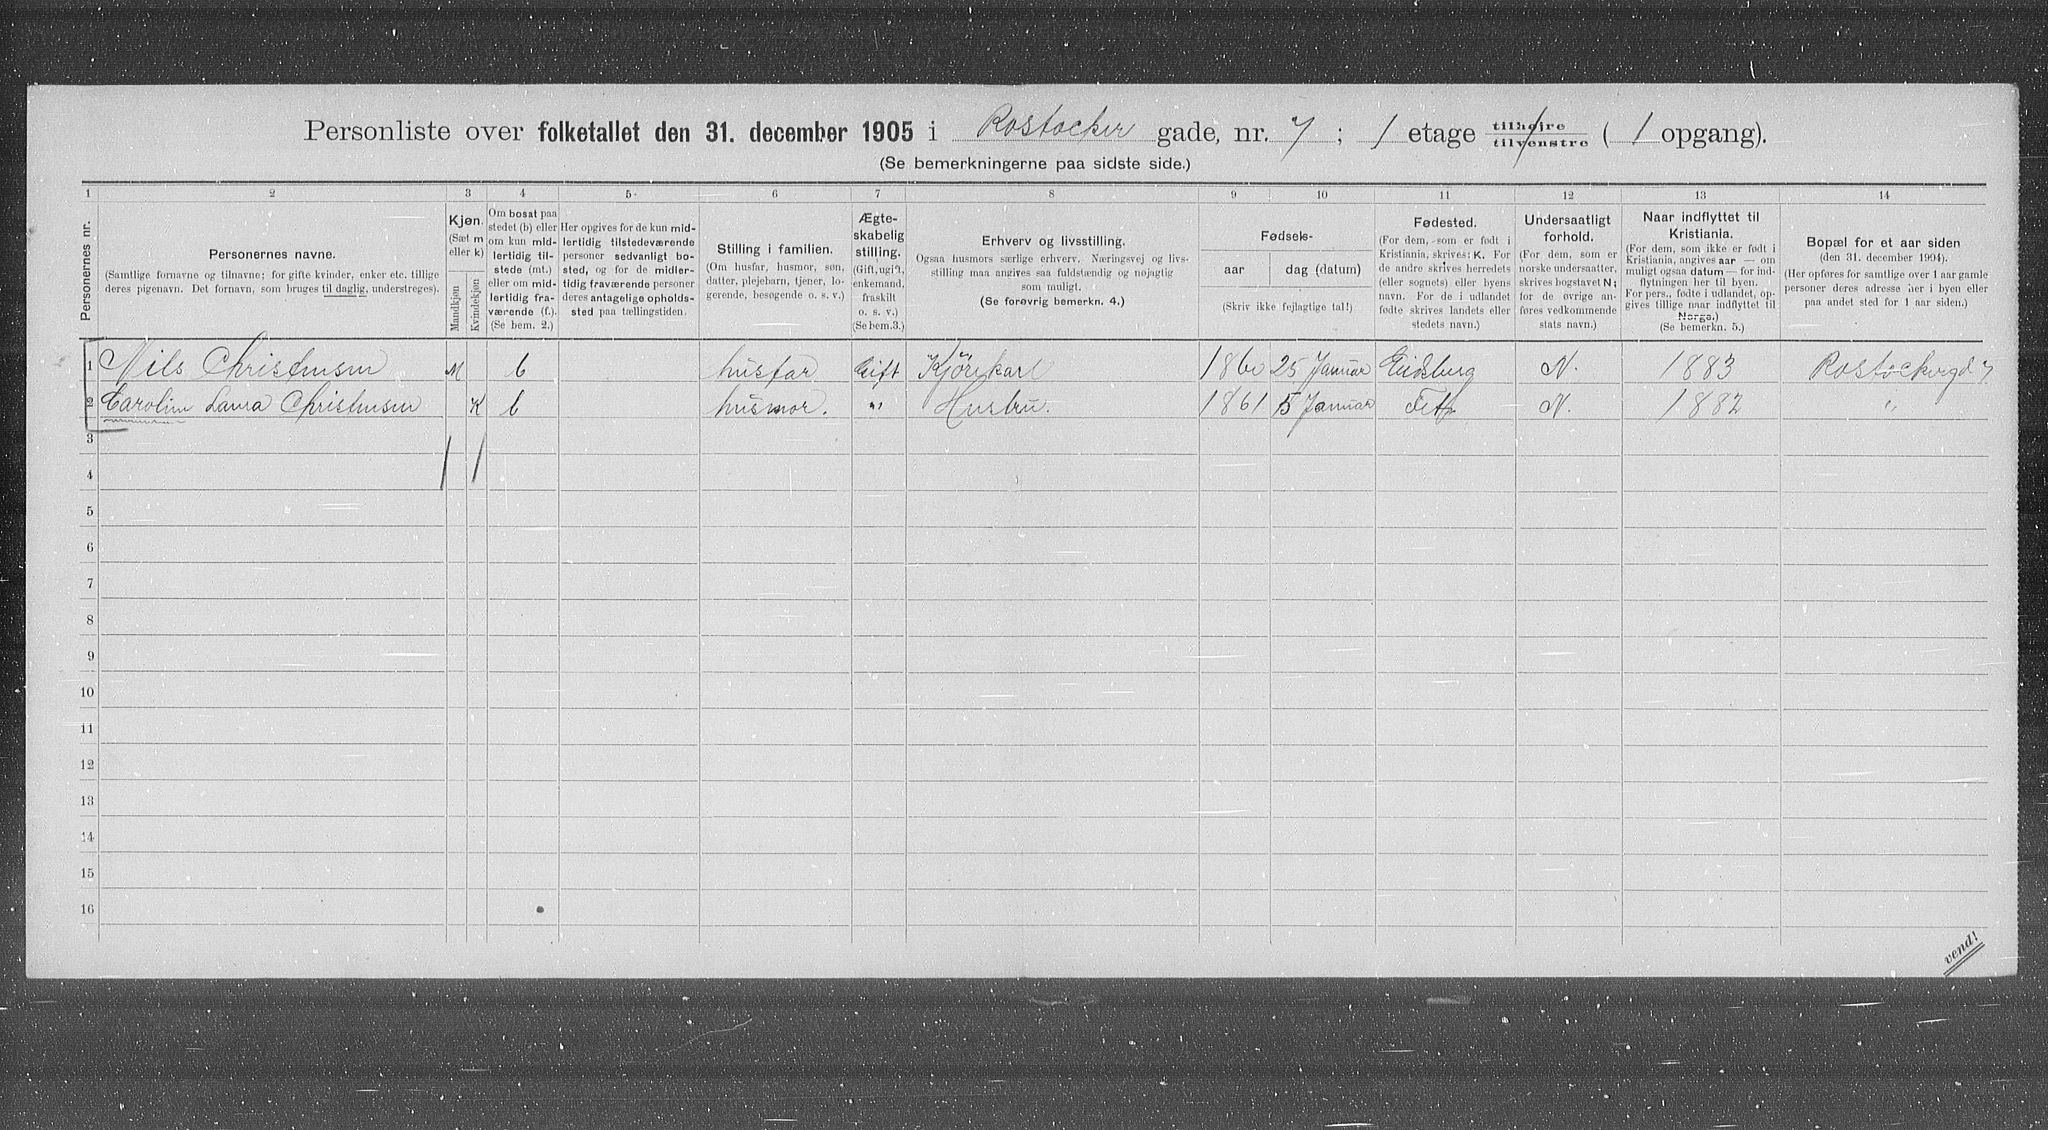 Personliste over folketallet den 31. december 1905 i Rostocker gade, nr. 7; 1 etage tilhøjre tilvenstre ( 1 opgang).
(Se bemerkningerne paa sidste side.)
1 2 3 4 5. 6 7 8 9 10 11 12 13 14
Personernes nr.
Personernes navne.
(Samtlige fornavne og tilnavne; for gifte kvinder, enker etc. tillige
deres pigenavn. Det fornavn, som bruges til daglig, understreges).
Kjøn.
(Sæt m
eller k)
Mandkjøn
Kvindekjøn
Om bosat paa
stedet (b) eller
om kun mid-
lertidig til-
stede (mt.)
eller om mid-
lertidig fra-
værende (f.).
(Se bem. 2.)
Her opgives for de kun mid-
lertidig tilstedeværende
personer sedvanligt bo-
sted, og for de midler-
tidig fraværende personer
deres antagelige opholds-
sted paa tællingstiden.
Stilling i familien.
(Om husfar, husmor, søn,
datter, plejebarn, tjener, lo-
gerende, besøgende o. s. v.)
Ægte-
skabelig
stilling.
(Gift, ugift,
enkemand,
fraskilt
o. s. v.)
(Se bem.3.)
Erhverv og livsstilling.
Ogsaa husmors særlige erhverv. Næringsvej og livs-
stilling maa angives saa fuldstændig og nøjagtig
som muligt.
(Se forøvrig bemerkn. 4.)
Fødsels-
aar dag (datum)
(Skriv ikke fejlagtige tal!)
Fødested.
(For dem, som er født i
Kristiania, skrives: K. For
de andre skrives herredets
(eller sognets) eller byens
navn. For de i udlandet
fødte skrives landets eller
stedets navn.)
Undersaatligt
forhold.
(For dem, som er
norske undersaatter,
skrives bogstavet N;
for de øvrige an-
føres vedkommende
stats navn.)
Naar indflyttet til
Kristiania.
(For dem, som ikke er født i
Kristiania, angives aar — om
muligt ogsaa datum — for ind-
flytningen her til byen.
For pers., fødte i udlandet, op-
gives tillige naar indflyttet til
Norge.)
(Se bemerkn. 5.)
Bopæl for et aar siden
(den 31. december 1904).
(Her opføres for samtlige over 1 aar gamle
personer deres adresse her i byen eller
paa andet sted for 1 aar siden.)
1 Nils Christensen M b husfar Gift Kjørekarl 1860 25 Januar Eidsberg N. 1883 Rostockergd 7
2 Caroline Laura Christensen K b husmor. " Hustru. 1861 5 Januar Fet N. 1882 "
3
4
5
6
7
8
9
10
11
12
13
14
15
16
vend!